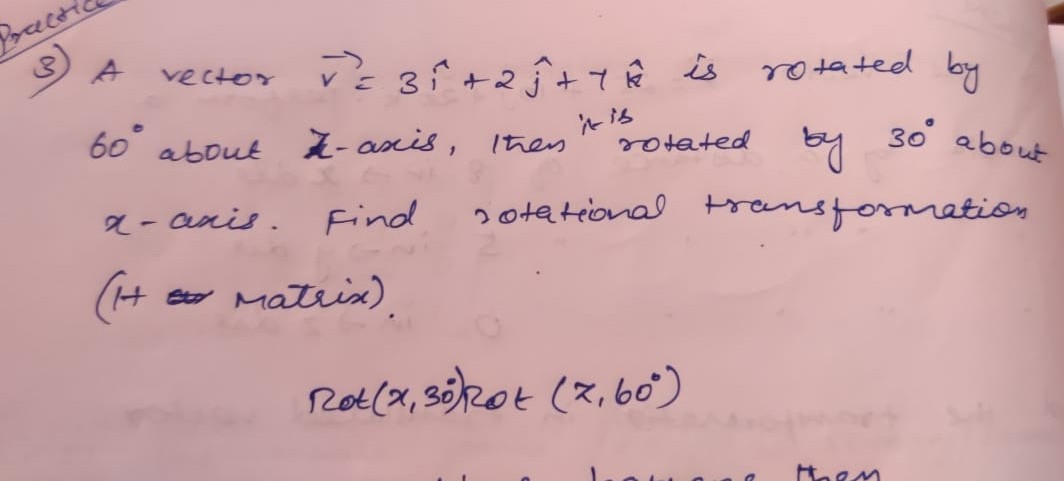 Practice
3) A vector v⃗ = 3î + 2ĵ + 7k̂ is rotated by
60° about z-axis, then it is rotated by 30° about
x-axis. Find rotational transformation
(H matrix).
Rot(x,30°)Rot (z,60°)
then